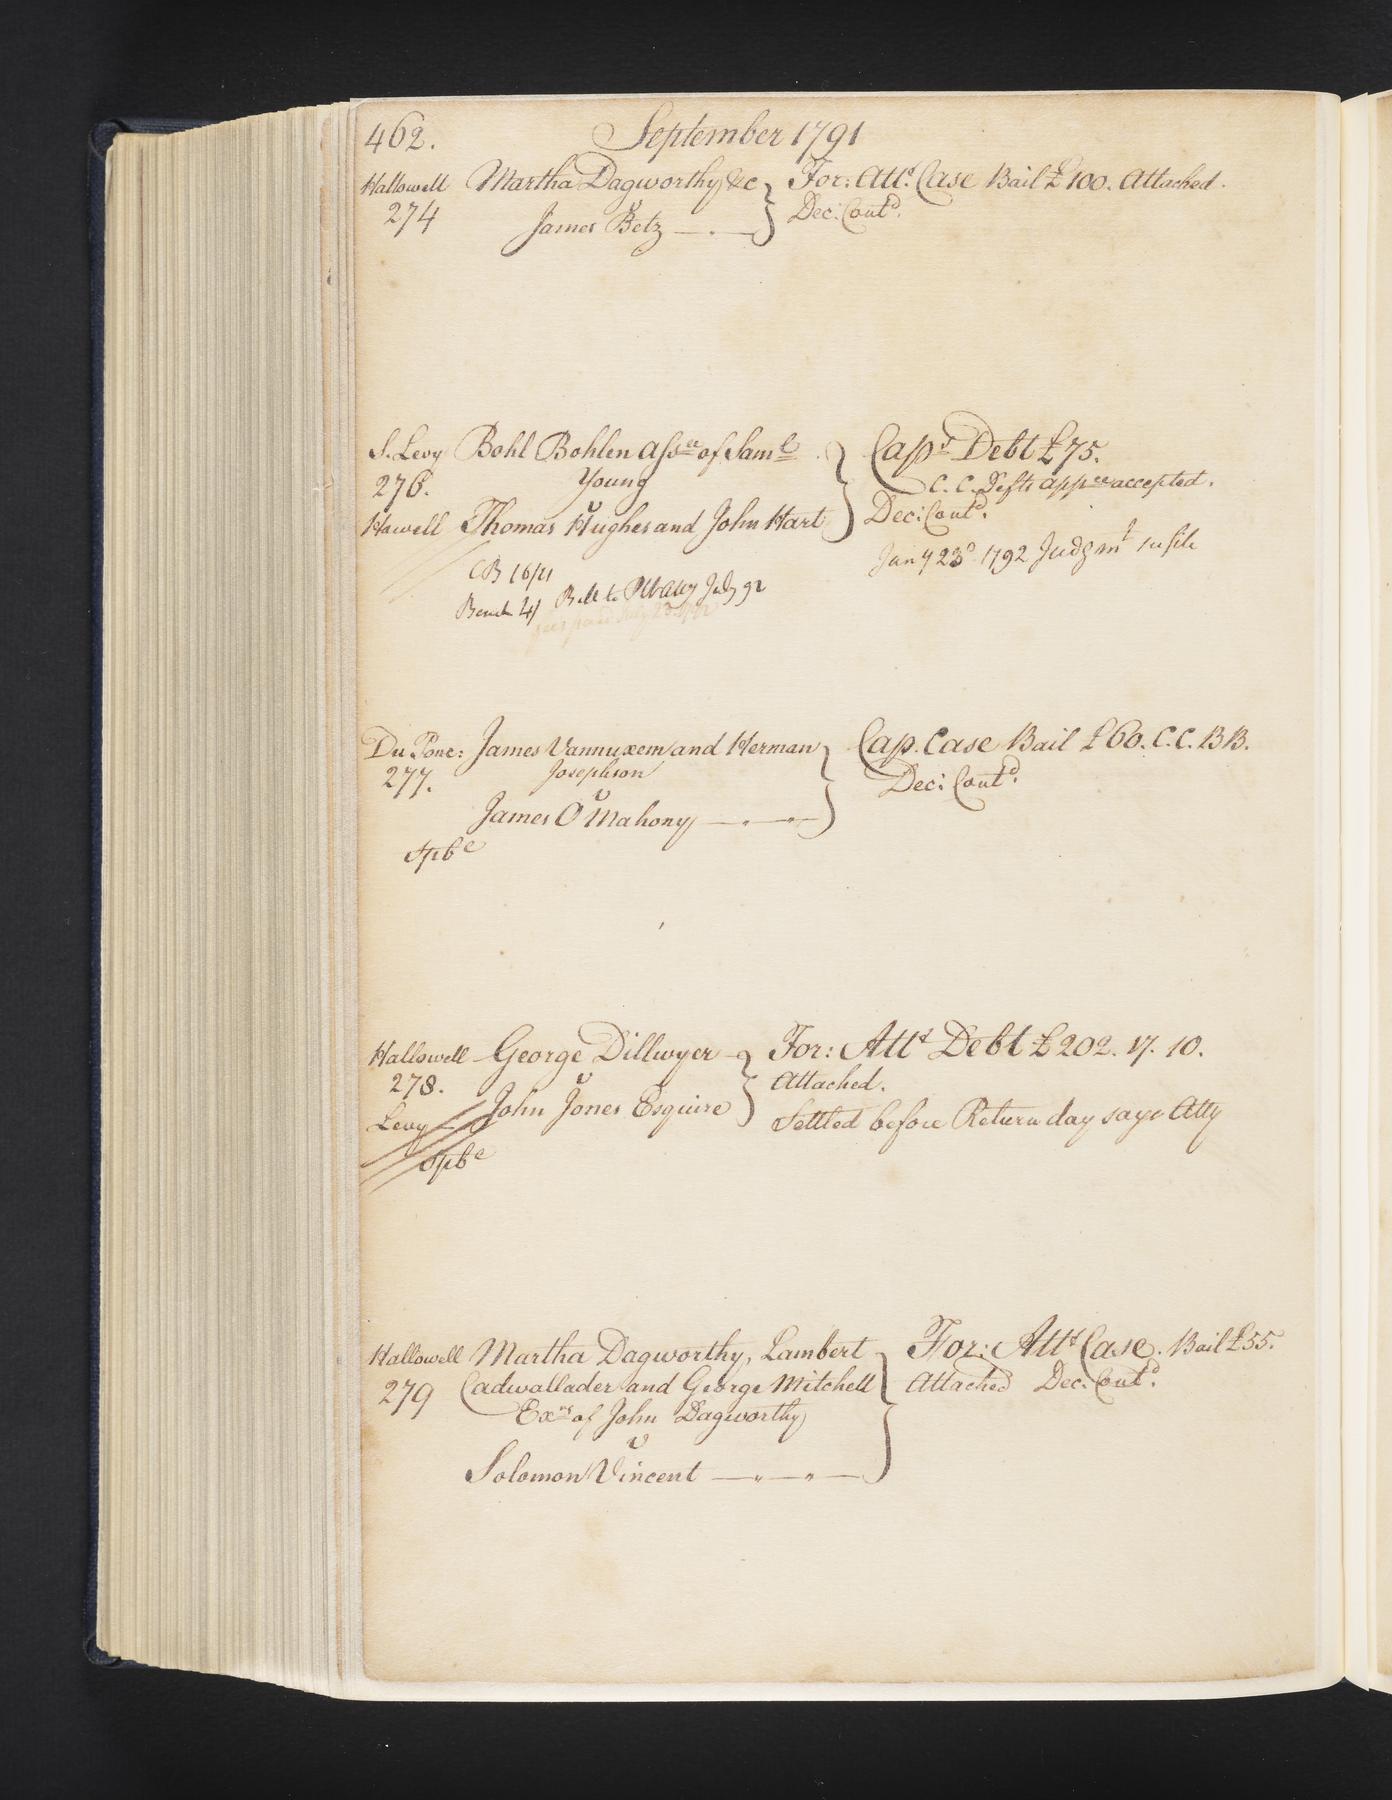 462. September 1791
Hallowell Martha Dagworthy &c } For: Attt. Case Bail £100. Attached.
274 v Dec: Contd.
James Betz
S. Levy Bohl Bohlen Assee of Saml } Capd Debt £75.
276. Young C. C. Defts appce accepted.
v
Howell Thomas Hughes and John Hart Dec: Contd.
Jany 23d 1792 Judgmt in file
CB 16/21
Bench 4/ Bill to Pl Atty July 92
Du Ponc: James Vannuxem and Herman } Cap. Case Bail £60. C.C. BB.
277. Josephson Dec: Contd.
v
James O'Mahony
spbc
Hallowell George Dillwyer } For: Attt Debt £202. 17. 10.
278. v Attached.
Levy John Jones Esquire Settled before Return day says Atty
spbc
Hallowell Martha Dagworthy, Lambert } For: Attt Case. Bail £55.
279 Cadwallader and George Mitchell Attached Dec: Contd.
Exrs of John Dagworthy
v
Solomon Vincent